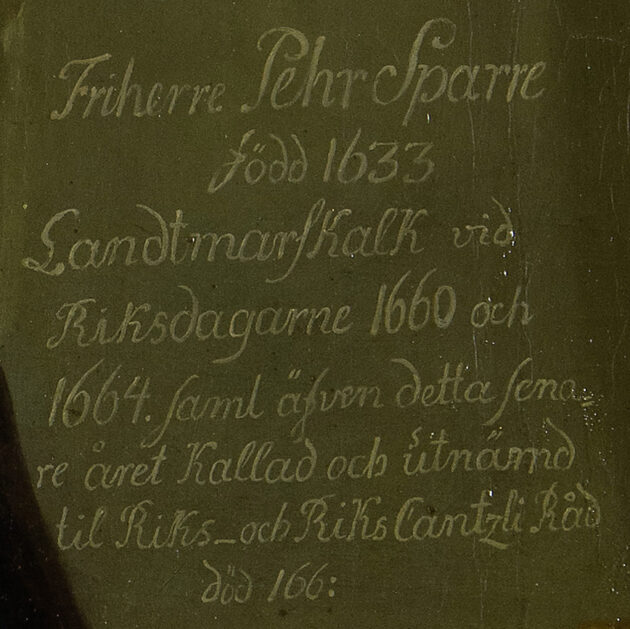 Friherre Pehr Sparre
född 1633
Landtmarskalk vid
Riksdagarne 1660 och
1664. saml äfven detta sena_
re året Kallad och utnämd
til Riks_ och Riks Cantzli Råd
död 166: